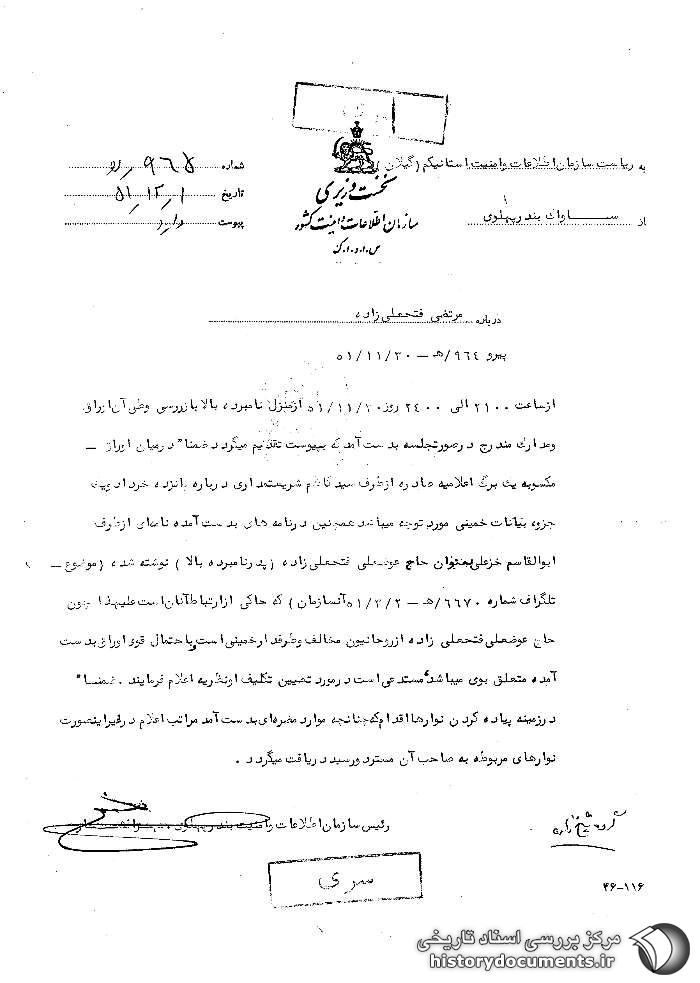 سری
به ریاست سازمان اطلاعات وامنیت استانیکم (گیلان)
از ســـاواك بندرپهلوی
نخست وزیری
سازمان اطلاعات و امنیت کشور
س.ا.و.ا.ک
شماره ۹۶۵
تاریخ ۵۱/۱۲/۱
پیوست دارد
درباره مرتضی فتحعلی زاده
پیرو ۹۶٤/هـ – ۵۱/۱۱/۳۰
ازساعت ۲۱۰۰ الی ۲٤۰۰ روز ۵۱/۱۱/۳۰ ازمنزل نامبرده بالا بازرسی وطی آن اوراق
ومدارك مندرج درصورتجلسه بدست آمدکه بپیوست تقدیم میگردد ضمنا" درمیان اوراق –
مکسوبه یك برگ اعلامیه صادره ازطرف سیدکاظم شریعتمداری درباره پانزده خرداد ویك
جزوه بیانات خمینی مورد توجه میباشد همچنین درنامه های بدست آمده نامه‌ای ازطرف
ابوالقاسم خزعلی بعنوان حاج عوضعلی فتحعلی زاده (پدرنامبرده بالا) نوشته شده (موضوع –
تلگراف شماره ۶۶۷۰/هـ – ۵۱/۳/۲ آنسازمان) که حاکی ازارتباط آنان است علیهذا چون
حاج عوضعلی فتحعلی زاده ازروحانیون مخالف وطرفدارخمینی است وباحتمال قوی اوراق بدست
آمده متعلق بوی میباشد مستدعی است درمورد تعیین تکلیف اونظریه اعلام فرمایند . ضمنا"
درزمینه پیاده کردن نوارها اقدام که چنانچه موارد مضره‌ای بدست آمد مراتب اعلام درغیراینصورت
نوارهای مربوطه به صاحب آن مسترد ورسید دریافت میگردد .
رئیس سازمان اطلاعات وامنیت بندرپهلوی
سری
۴۶-۱۱۶
مرکز بررسی اسناد تاریخی
historydocuments.ir